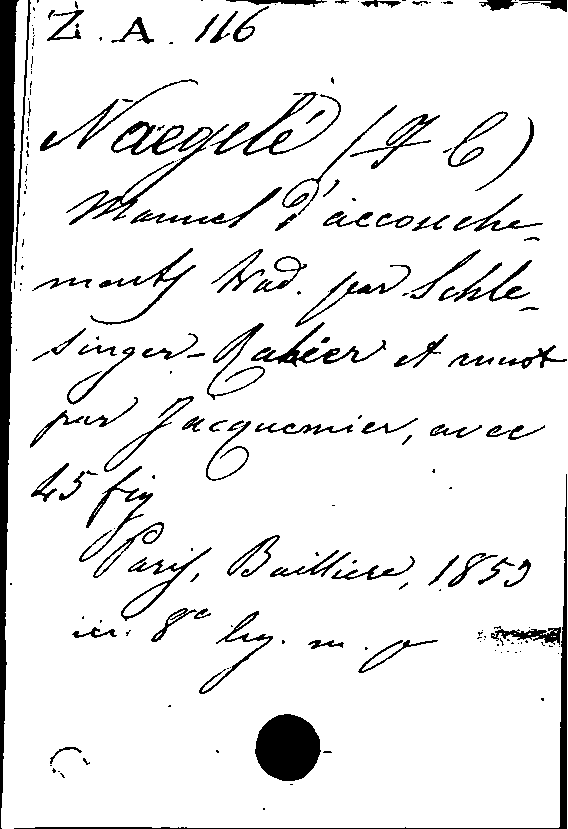 Z. A. 116
Naegelé (F C)
Manuel d'accouche-
ments trad. par Schle-
singer-Rahier et annot
par Jacquemier, avec
45 fig
Paris, Baillière, 1853
in. 8°